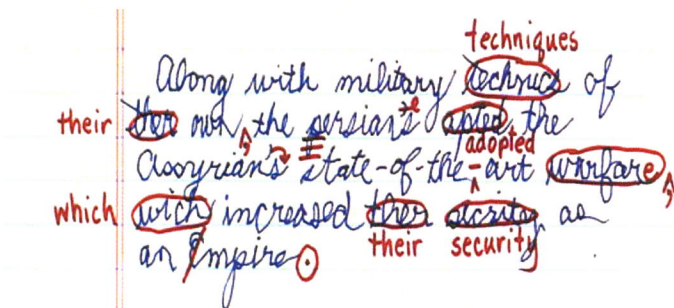 techniques
Along with military technics of
their ther own, the persian's apted the
adopted
Assyrian's state-of-the-art warfare,
which wich increased ther secrity as
their security
an Empire.